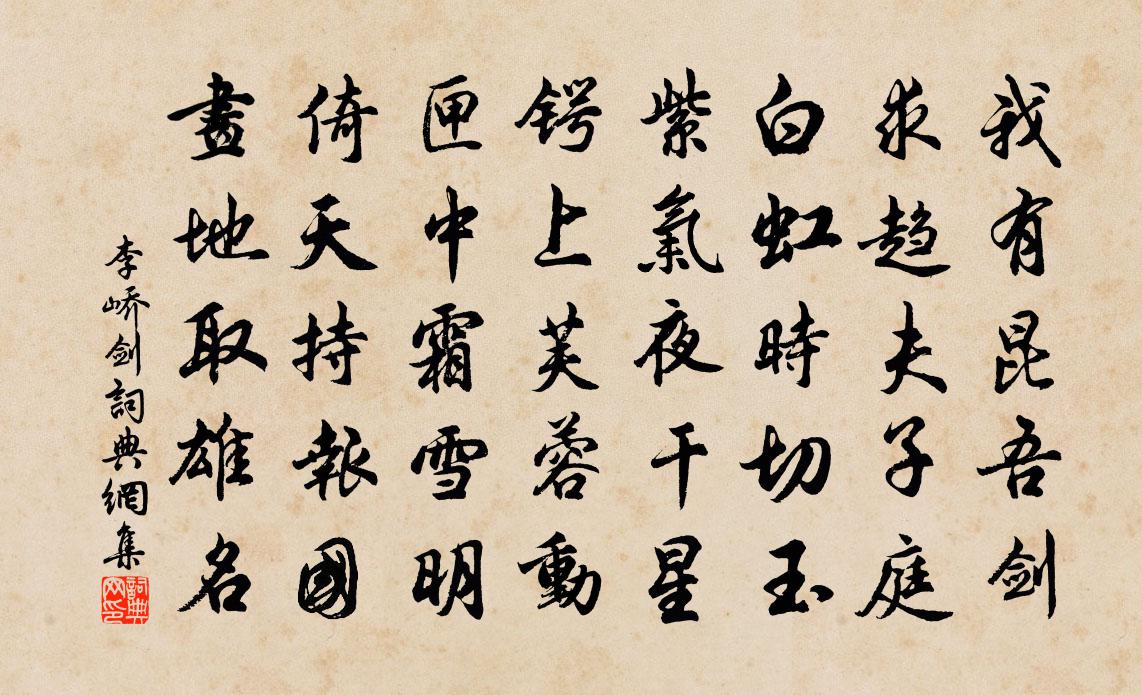 我有昆吾劍
求趨夫子庭
白虹時切玉
紫氣夜干星
鍔上芙蓉動
匣中霜雪明
倚天持報國
畫地取雄名
李嶠劍詞典網集
詞典網印